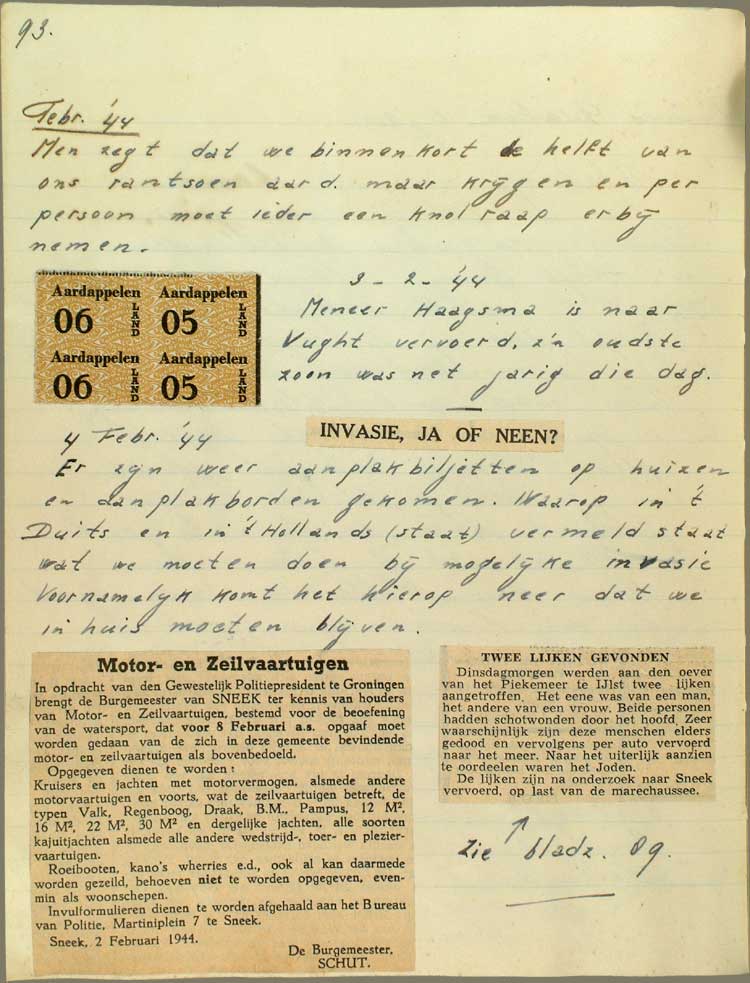 93.
Febr. '44
Men zegt dat we binnenkort de helft van
ons rantsoen aard. maar krijgen en per
persoon moet ieder een knolraap erbij
nemen.
Aardappelen 06 LAND
Aardappelen 05 LAND
Aardappelen 06 LAND
Aardappelen 05 LAND
3-2-'44
Meneer Haagsma is naar
Vught vervoerd, z'n oudste
zoon was net jarig die dag.
INVASIE, JA OF NEEN?
4 Febr. '44
Er zijn weer aanplakbiljetten op huizen
en aanplakborden gekomen. Waarop in 't
Duits en in 't Hollands (staat) vermeld staat
wat we moeten doen bij mogelijke invasie
Voornamelijk komt het hierop neer dat we
in huis moeten blijven.
Motor- en Zeilvaartuigen
In opdracht van den Gewestelijk Politiepresident te Groningen
brengt de Burgemeester van SNEEK ter kennis van houders
van Motor- en Zeilvaartuigen, bestemd voor de beoefening
van de watersport, dat voor 8 Februari a.s. opgaaf moet
worden gedaan van de zich in deze gemeente bevindende
motor- en zeilvaartuigen als bovenbedoeld.
Opgegeven dienen te worden:
Kruisers en jachten met motorvermogen, alsmede andere
motorvaartuigen en voorts, wat de zeilvaartuigen betreft, de
typen Valk, Regenboog, Draak, B.M., Pampus, 12 M²,
16 M², 22 M², 30 M² en dergelijke jachten, alle soorten
kajuitjachten alsmede alle andere wedstrijd-, toer- en plezier-
vaartuigen.
Roeibooten, kano's wherries e.d., ook al kan daarmede
worden gezeild, behoeven niet te worden opgegeven, even-
min als woonschepen.
Invulformulieren dienen te worden afgehaald aan het Bureau
van Politie, Martiniplein 7 te Sneek.
Sneek, 2 Februari 1944.
De Burgemeester,
SCHUT.
TWEE LIJKEN GEVONDEN
Dinsdagmorgen werden aan den oever
van het Piekemeer te IJlst twee lijken
aangetroffen. Het eene was van een man,
het andere van een vrouw. Beide personen
hadden schotwonden door het hoofd. Zeer
waarschijnlijk zijn deze menschen elders
gedood en vervolgens per auto vervoerd
naar het meer. Naar het uiterlijk aanzien
te oordeelen waren het Joden.
De lijken zijn na onderzoek naar Sneek
vervoerd, op last van de marechaussee.
zie bladz. 89.